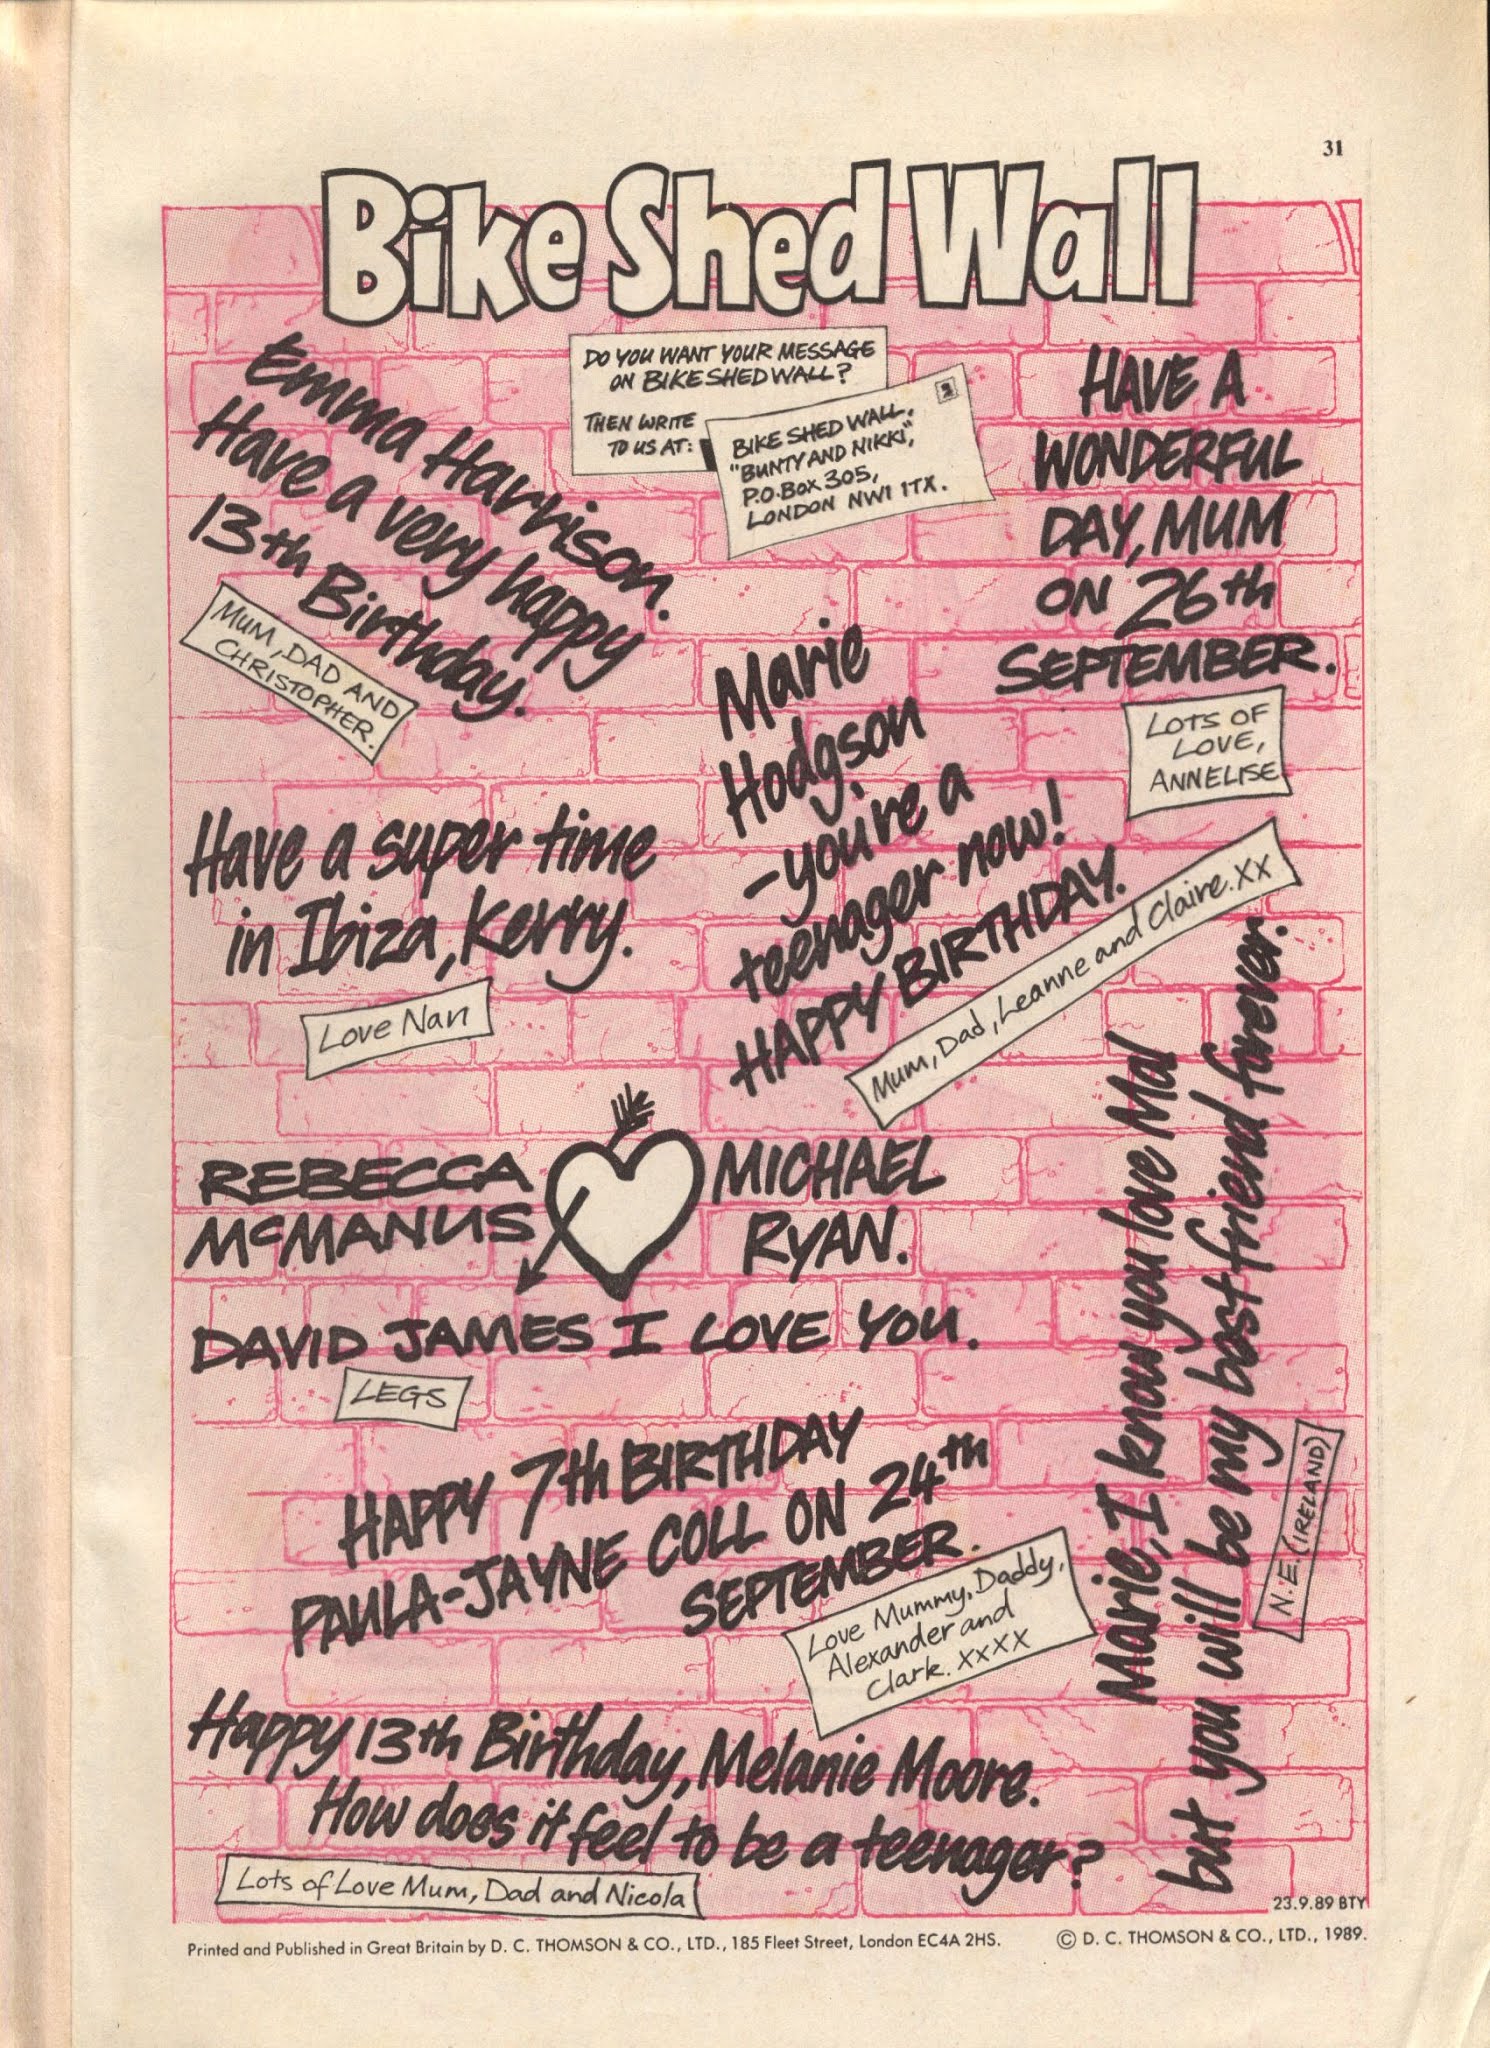 31
Bike Shed Wall
DO YOU WANT YOUR MESSAGE
ON BIKE SHED WALL?
THEN WRITE
TO US AT:
BIKE SHED WALL.
"BUNTY AND NIKKI",
P.O. BOX 305,
LONDON NW1 1TX.
Emma Harrison.
Have a very happy
13th Birthday.
MUM, DAD AND
CHRISTOPHER.
HAVE A
WONDERFUL
DAY, MUM
ON 26th
SEPTEMBER.
LOTS OF
LOVE,
ANNELISE
Marie
Hodgson
- you're a
teenager now!
HAPPY BIRTHDAY.
Mum, Dad, Leanne and Claire. Xx
Have a super time
in Ibiza, Kerry.
Love Nan
REBECCA
McMANUS
MICHAEL
RYAN.
DAVID JAMES I LOVE YOU.
LEGS
Marie, I know you love Mal
but you will be my best friend forever.
N.E. (IRELAND)
HAPPY 7th BIRTHDAY
PAULA-JAYNE COLL ON 24th
SEPTEMBER.
Love Mummy, Daddy,
Alexander and
Clark. XXXX
Happy 13th Birthday, Melanie Moore.
How does it feel to be a teenager?
Lots of Love Mum, Dad and Nicola
23.9.89 BTY
Printed and Published in Great Britain by D. C. THOMSON & CO., LTD., 185 Fleet Street, London EC4A 2HS.
© D. C. THOMSON & CO., LTD., 1989.